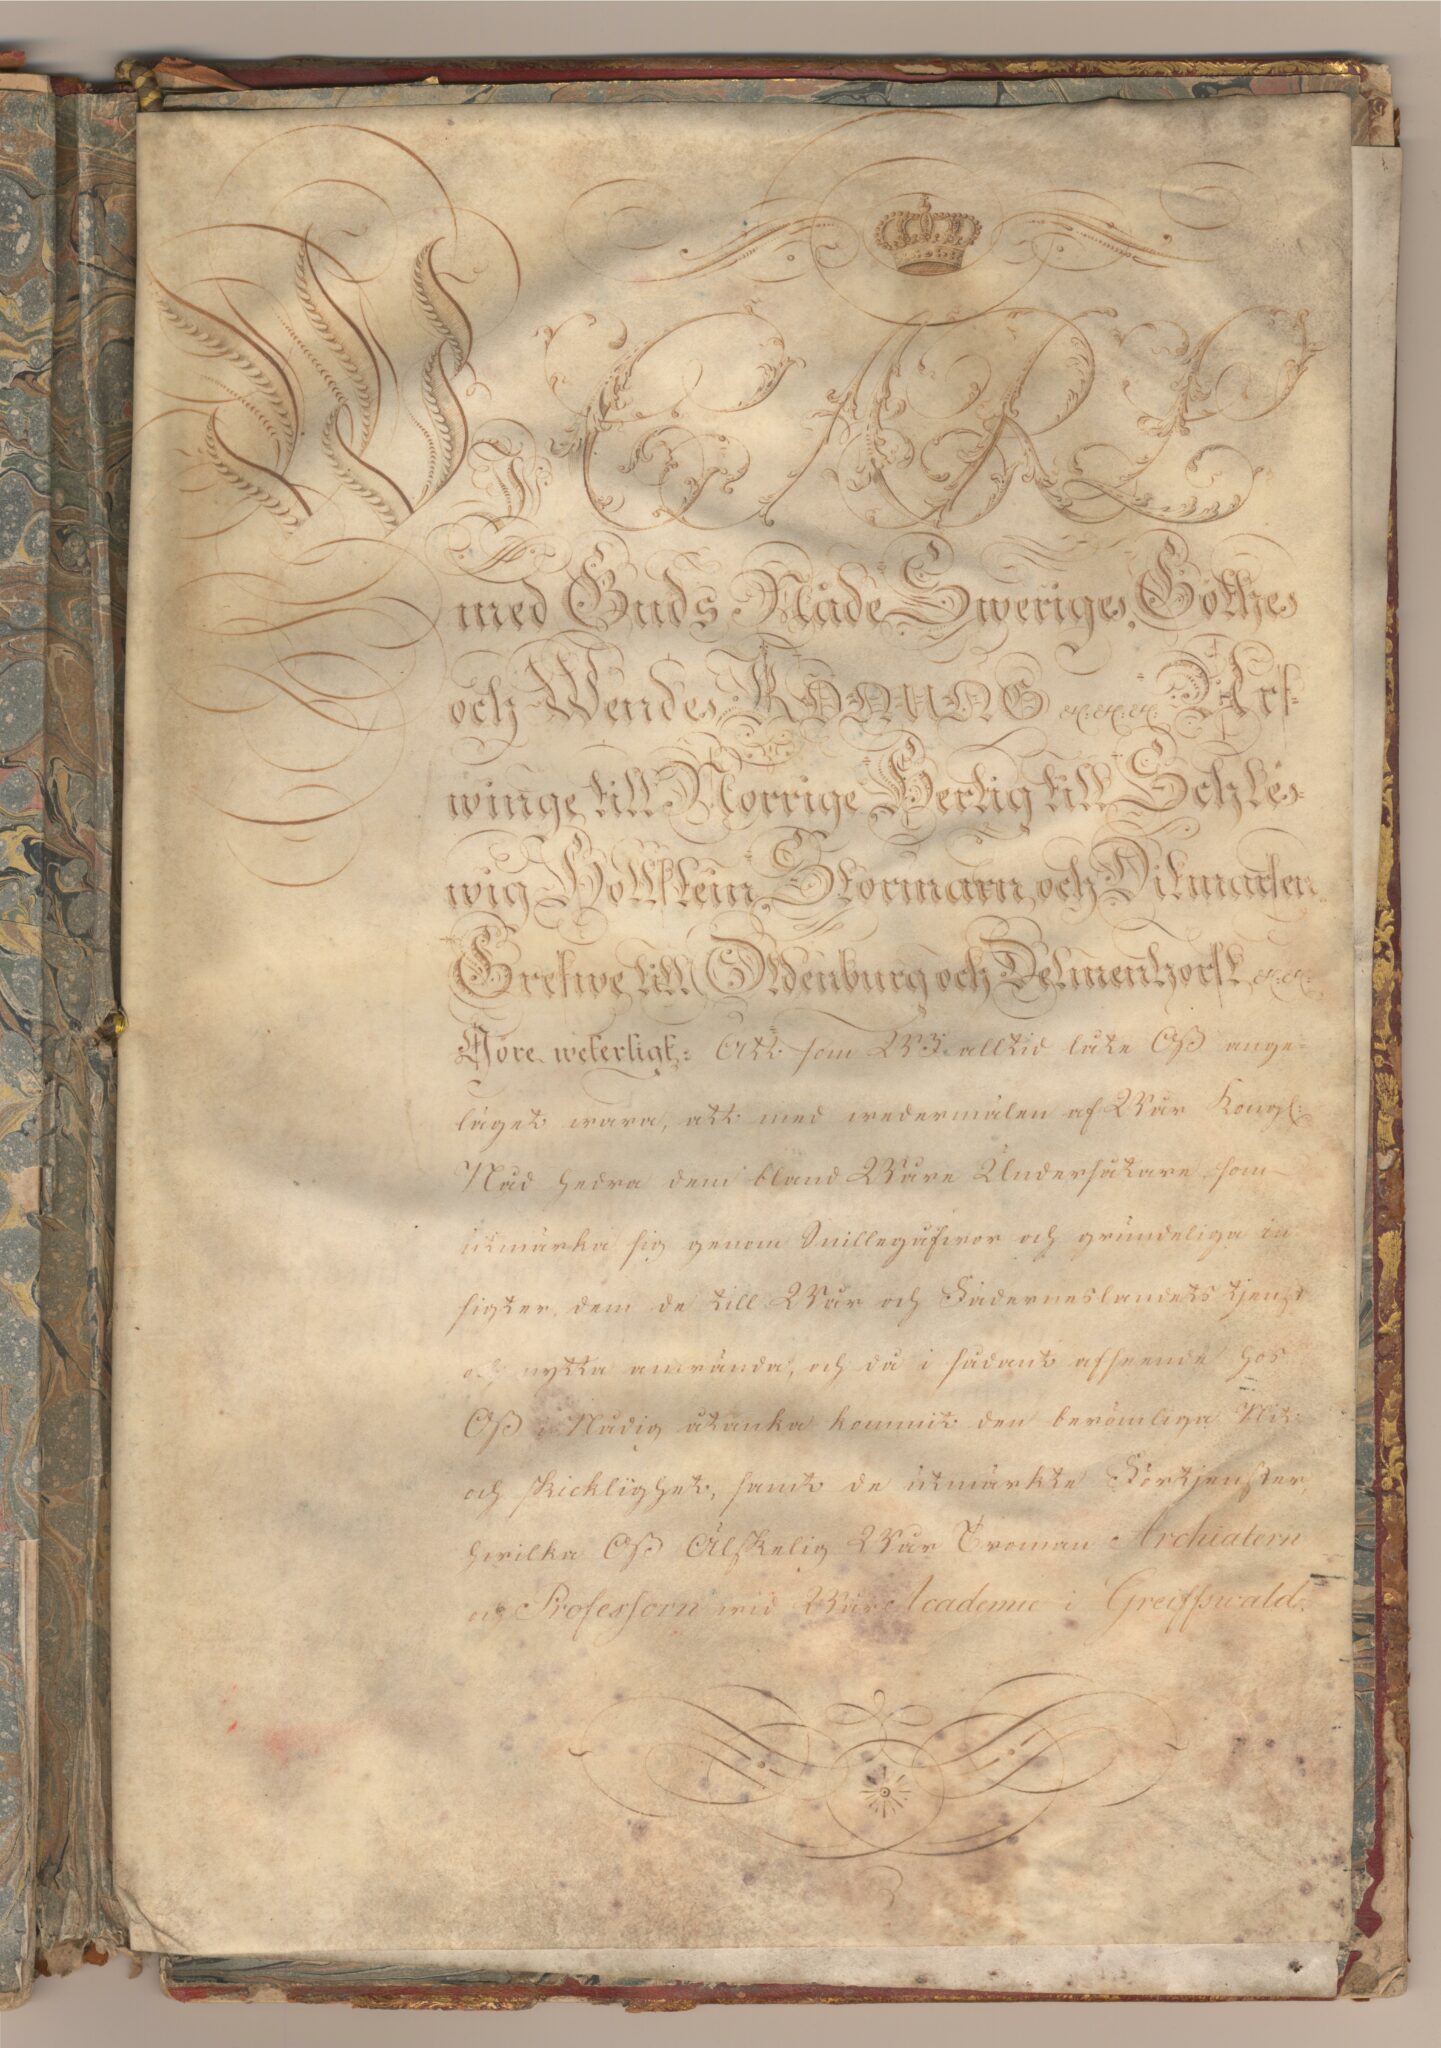 Wi CARL
med Guds Nåde Sweriges, Göthes
och Wendes KONUNG &c. &c. &c. Arf-
winge till Norrige Hertig till Schles-
wig Hollstein, Stormarn och Ditmarsen
Grefwe till Oldenburg och Delmenhorst &c. &c.
Göre weterligt: Att som Wi alltid låte Oß ange-
läget wara, att med wedermälen af Wår Kongl:
Nåd hedra dem bland Wåre Undersåtare som
utmärka sig genom Snillegåfwor och grundeliga in
sigter dem de till Wår och Fäderneslandets tjenst
och nytta använda, och då i sådant afseende hos
Oß i Nådig åtanka kommit den berömliga Nit
och skicklighet, samt de utmärkte Förtjenster,
hwilka Oß Älskelig Wår Troman Archiatern
och Professorn wid Wår Academie i Greiffswald